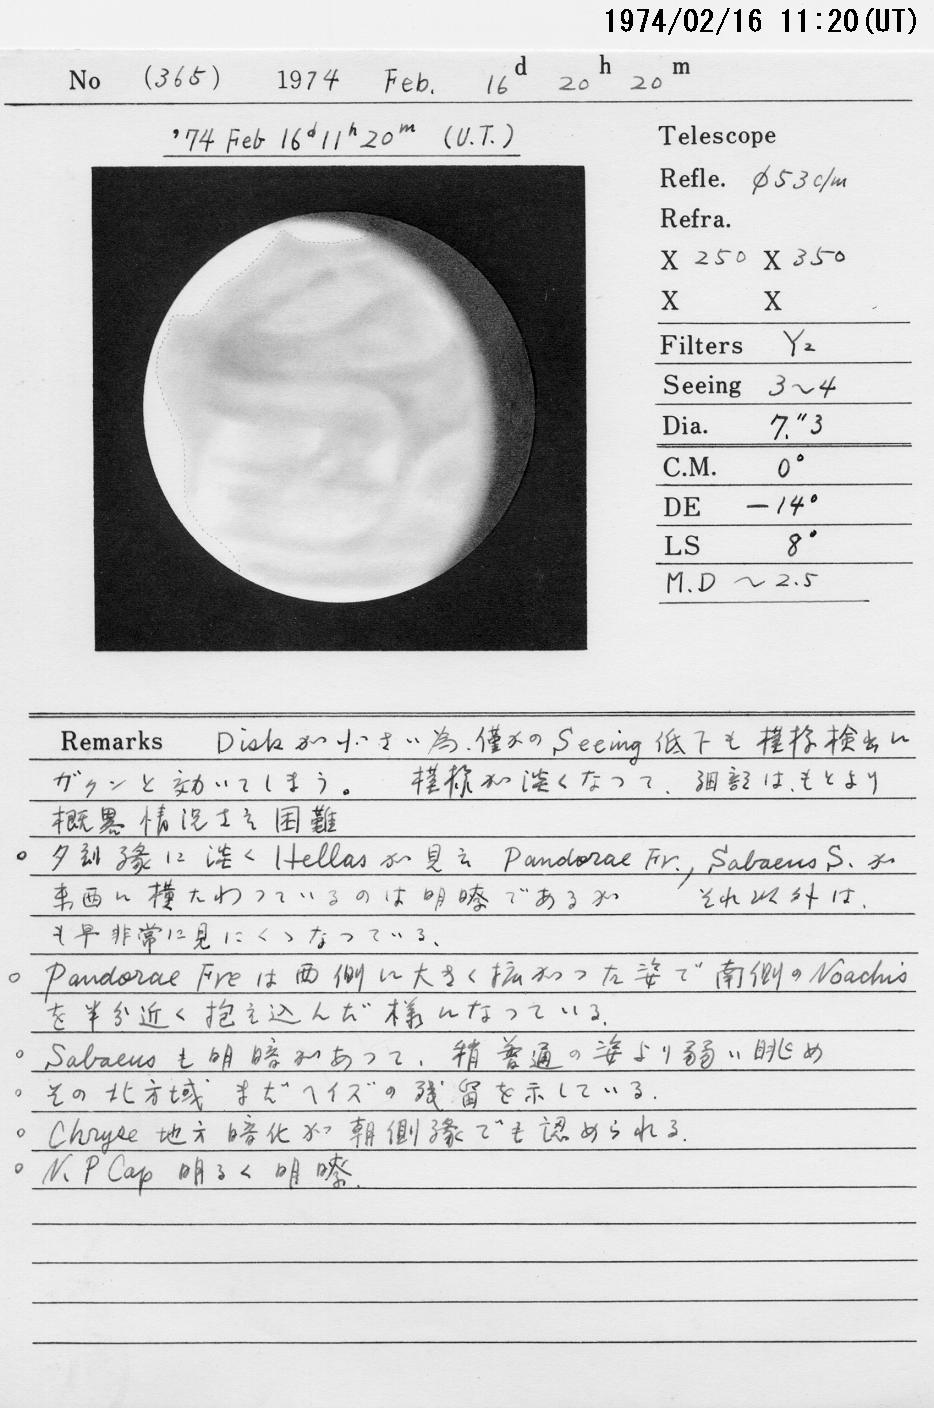 1974/02/16 11:20(UT)
No (365) 1974 Feb. 16d 20h 20m
'74 Feb 16d 11h 20m (U.T.)
Telescope
Refle. φ53c/m
Refra.
X 250 X 350
X X
Filters Y2
Seeing 3～4
Dia. 7."3
C.M. 0°
DE －14°
LS 8°
M.D ～2.5
Remarks Diskが小さい為、僅かのSeeing低下も模様検出に
ガクンと効いてしまう。 模様が淡くなって、細部は、もとより
概略情況さえ困難
○ 夕刻縁に淡くHellasが見え Pandorae Fr., Sabaeus S.が
東西に横たわっているのは明瞭であるが それ以外は、
も早非常に見にくくなっている、
○ Pandorae Freは西側に大きく拡がった姿で南側のNoachis
を半分近く抱え込んだ様になっている、
○ Sabaeusも明暗があって、稍普通の姿より弱い眺め
○ その北方域まだヘイズの残留を示している.
○ Chryse地方暗化が朝側縁でも認められる.
○ N.P Cap 明るく明瞭.